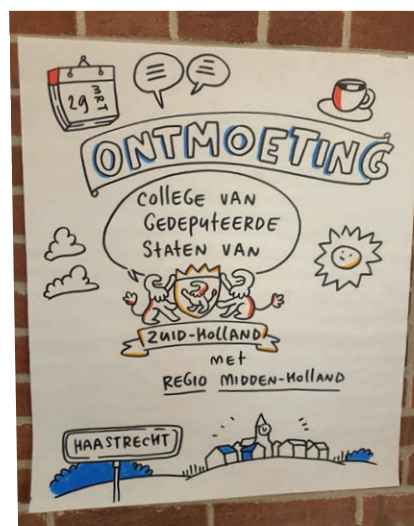 29 MRT
ONTMOETING
COLLEGE VAN
GEDEPUTEERDE
STATEN VAN
ZUID-HOLLAND
met
REGIO MIDDEN-HOLLAND
HAASTRECHT